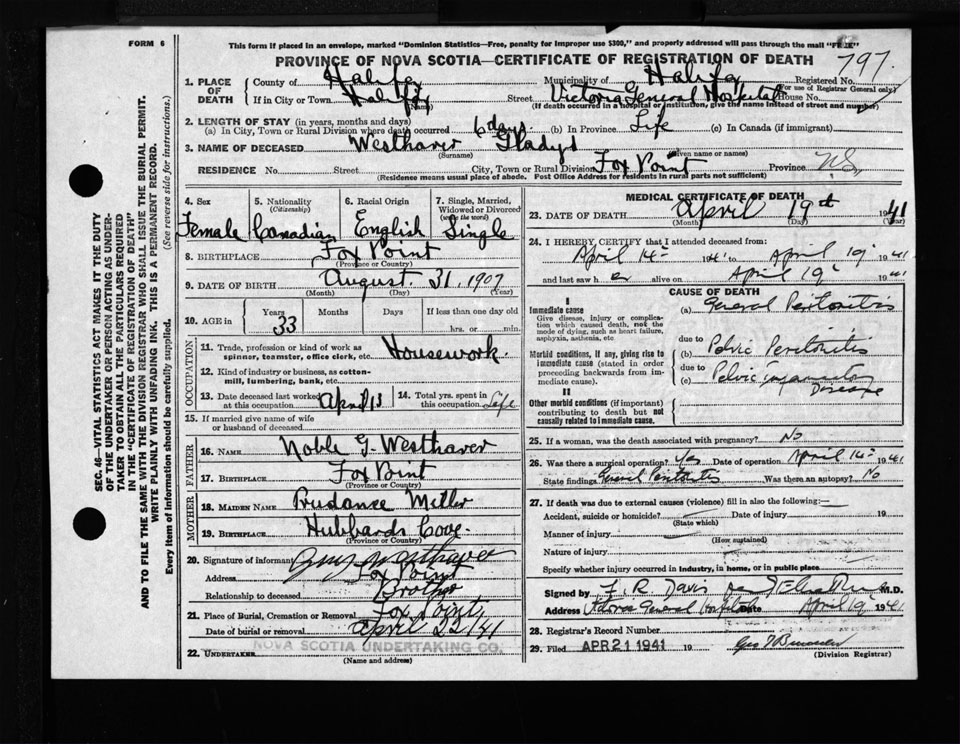 FORM 6
This form if placed in an envelope, marked "Dominion Statistics—Free, penalty for improper use $300," and properly addressed will pass through the mail "FREE"
PROVINCE OF NOVA SCOTIA—CERTIFICATE OF REGISTRATION OF DEATH
797.
1. PLACE OF DEATH
County of Halifax Municipality of Halifax Registered No.
(For use of Registrar General only)
If in City or Town Halifax Street Victoria General Hospital House No.
(Name) (If death occurred in a hospital or institution, give the name instead of street and number)
2. LENGTH OF STAY (in years, months and days)
(a) In City, Town or Rural Division where death occurred 6 days (b) In Province Life (c) In Canada (if immigrant)
3. NAME OF DECEASED Westhaver Gladys
(Surname) (Given name or names)
RESIDENCE No. Street City, Town or Rural Division Fox Point Province N.S.
(Residence means usual place of abode. Post Office Address for residents in rural parts not sufficient)
4. Sex Female
5. Nationality (Citizenship) Canadian
6. Racial Origin English
7. Single, Married, Widowed or Divorced (write the word) Single
8. BIRTHPLACE Fox Point
(Province or Country)
9. DATE OF BIRTH August 31, 1907
(Month) (Day) (Year)
10. AGE in Years 33 Months Days If less than one day old
hrs. or min.
OCCUPATION
11. Trade, profession or kind of work as spinner, teamster, office clerk, etc. Housework.
12. Kind of industry or business, as cotton-mill, lumbering, bank, etc.
13. Date deceased last worked at this occupation April 13
14. Total yrs. spent in this occupation Life
15. If married give name of wife or husband of deceased
FATHER
16. NAME Noble G. Westhaver
17. BIRTHPLACE Fox Point
(Province or Country)
MOTHER
18. MAIDEN NAME Prudance Miller
19. BIRTHPLACE Hubbards Cove.
(Province or Country)
20. Signature of informant Westhaver
Address Fox Point
Relationship to deceased Brother
21. Place of Burial, Cremation or Removal Fox Point
Date of burial or removal April 22/41
22. UNDERTAKER NOVA SCOTIA UNDERTAKING CO.
(Name and address)
MEDICAL CERTIFICATE OF DEATH
23. DATE OF DEATH April 19th 1941
(Day) (Year)
24. I HEREBY CERTIFY that I attended deceased from:
April 14th 1941 to April 19th 1941
and last saw her alive on April 19th 1941
CAUSE OF DEATH
I
Immediate cause
Give disease, injury or complication which caused death, not the mode of dying, such as heart failure, asphyxia, asthenia, etc.
(a) General Peritonitis
due to
Morbid conditions, if any, giving rise to immediate cause (stated in order proceeding backwards from immediate cause).
(b) Pelvic Peritonitis
due to
(c) Pelvic Inflammatory Disease
II
Other morbid conditions (if important) contributing to death but not causally related to immediate cause.
25. If a woman, was the death associated with pregnancy? No
26. Was there a surgical operation? Yes Date of operation April 14th 1941
State findings General Peritonitis Was there an autopsy? No
27. If death was due to external causes (violence) fill in also the following:—
Accident, suicide or homicide? Date of injury 19
(State which)
Manner of injury
(How sustained)
Nature of injury
Specify whether injury occurred in industry, in home, or in public place
Signed by F. R. Davis M.D.
Address Victoria General Hospital Date April 19th 1941
28. Registrar's Record Number
29. Filed APR 21 1941 19
(Division Registrar)
SEC. 46—VITAL STATISTICS ACT MAKES IT THE DUTY
OF THE UNDERTAKER OR PERSON ACTING AS UNDERTAKER TO OBTAIN ALL THE PARTICULARS REQUIRED
IN THE "CERTIFICATE OF REGISTRATION OF DEATH"
AND TO FILE THE SAME WITH THE DIVISION REGISTRAR WHO SHALL ISSUE THE BURIAL PERMIT.
WRITE PLAINLY WITH UNFADING INK. THIS IS A PERMANENT RECORD.
Every item of information should be carefully supplied. (See reverse side for instructions.)